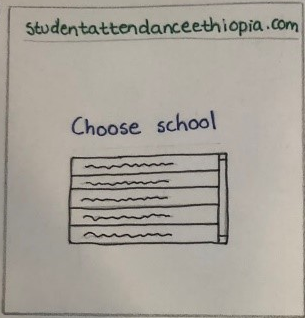 studentattendanceethiopia.com
Choose school